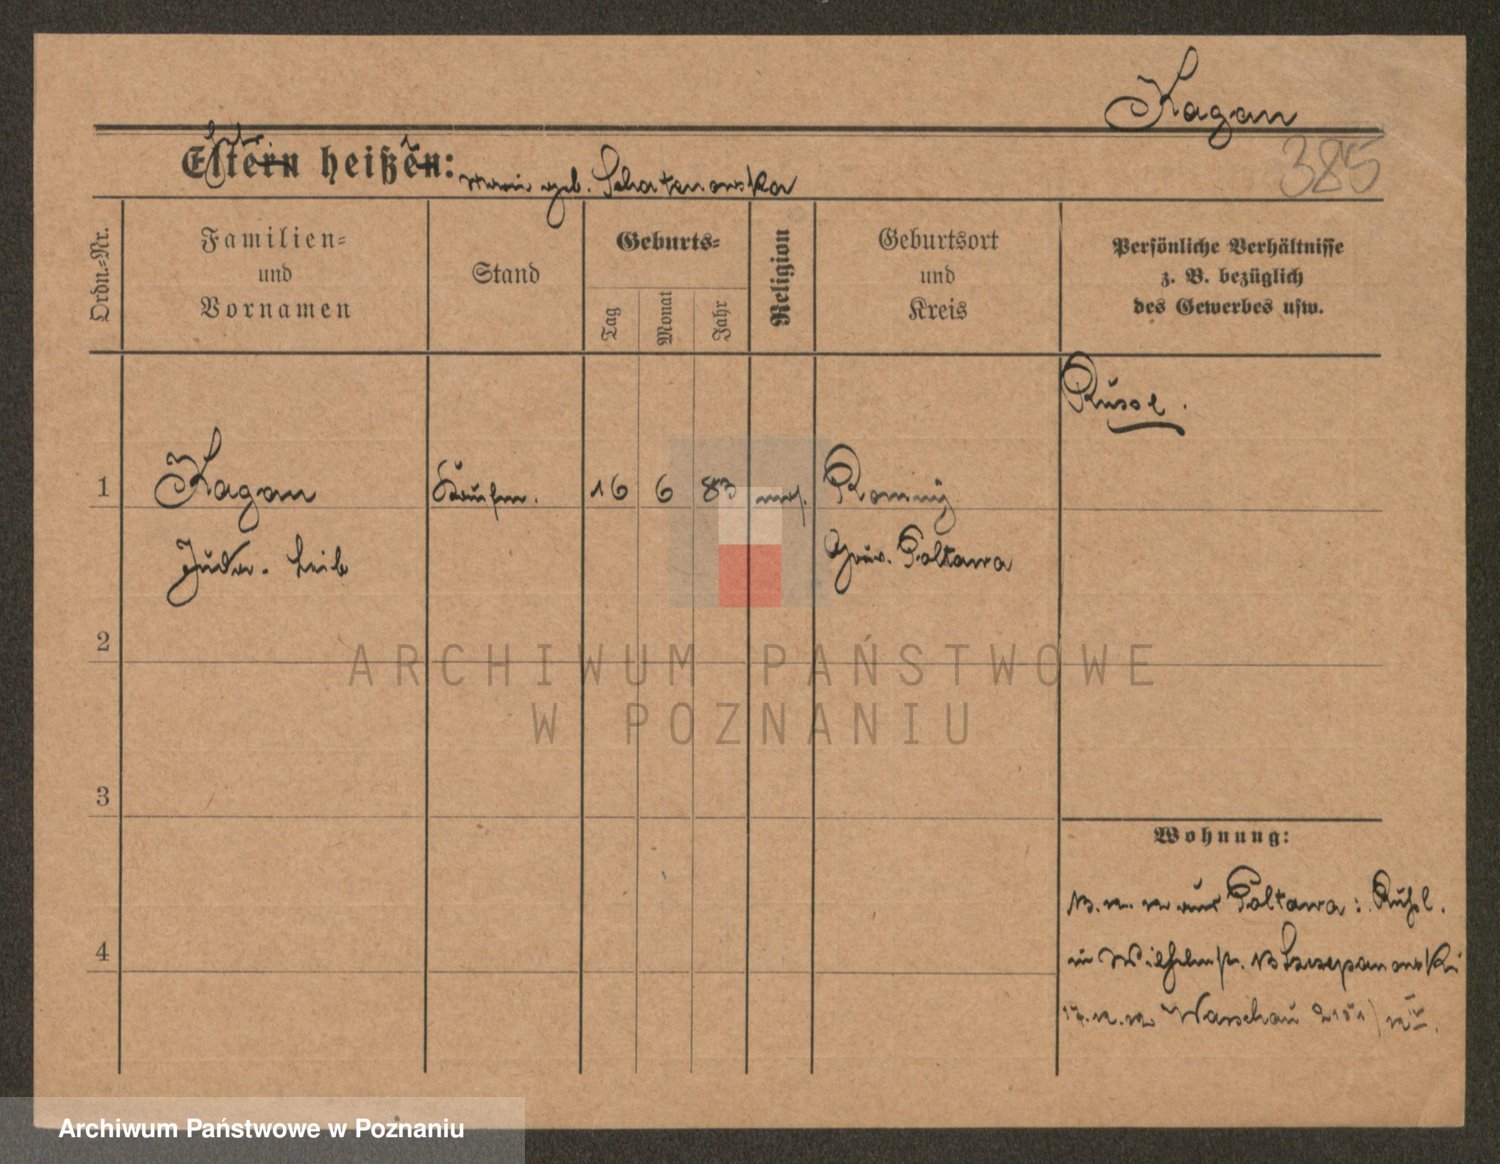 Kagan
385
Eltern heißen:
geb. Schatznowska
Ordn.-Nr.
Familien-
und
Vornamen
Stand
Geburts-
Tag
Monat
Jahr
Religion
Geburtsort
und
Kreis
Persönliche Verhältnisse
z. B. bezüglich
des Gewerbes usw.
Russe.
1
Kagan
Kaufm.
16
6
83
mos.
Romny
Juda. Leib
Gouv. Poltawa
2
3
4
Wohnung:
Poltawa:
in Wilhelmstr. Szczepanowski
Warschau
ARCHIWUM PAŃSTWOWE
W POZNANIU
Archiwum Państwowe w Poznaniu